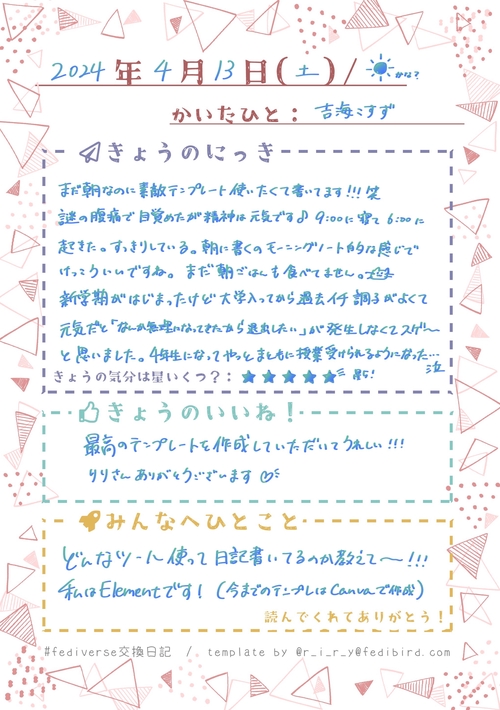 2024年4月13日(土)/☀かな?
かいたひと：吉海こすず
きょうのにっき
まだ朝なのに素敵テンプレート使いたくて書いてます!!!笑
謎の腹痛で目覚めたが精神は元気です♪ 9:00に寝て6:00に
起きた。すっきりしている。朝に書くのモーニングノート的な感じで
けっこういいですね。まだ朝ごはんも食べてません。
新学期がはじまったけど大学入ってから過去イチ調子がよくて
元気だと「なんか無理になってきたから退出したい」が発生しなくてスゲ〜
と思いました。4年生になってやっとまともに授業受けられるようになった…泣
きょうの気分は星いくつ？：★★★★★ 星5!
きょうのいいね！
最高のテンプレートを作成していただいてうれしい!!!
りりさんありがとうございます♡
みんなへひとこと
どんなツール使って日記書いてるのか教えて〜!!!
私はElementです! (今までのテンプレはCanvaで作成)
読んでくれてありがとう！
#fediverse交換日記 / template by @r_i_r_y@fedibird.com